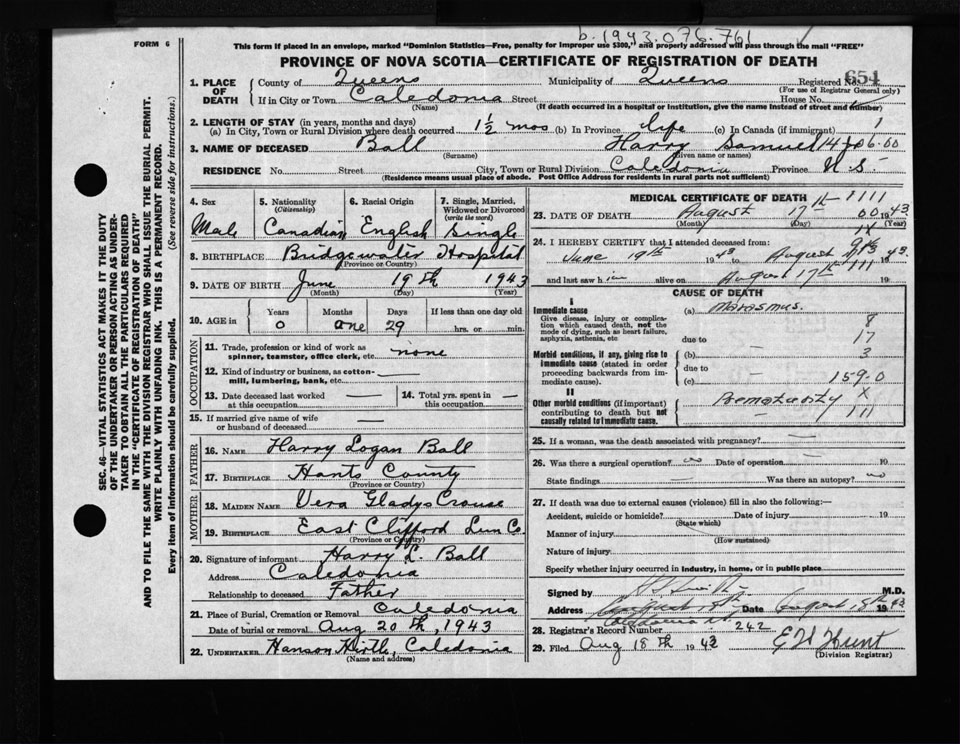 b. 1943.076.761
FORM 6
This form if placed in an envelope, marked "Dominion Statistics—Free, penalty for improper use $300," and properly addressed will pass through the mail "FREE"
PROVINCE OF NOVA SCOTIA—CERTIFICATE OF REGISTRATION OF DEATH
SEC. 46—VITAL STATISTICS ACT MAKES IT THE DUTY
OF THE UNDERTAKER OR PERSON ACTING AS UNDER-
TAKER TO OBTAIN ALL THE PARTICULARS REQUIRED
IN THE "CERTIFICATE OF REGISTRATION OF DEATH"
AND TO FILE THE SAME WITH THE DIVISION REGISTRAR WHO SHALL ISSUE THE BURIAL PERMIT.
WRITE PLAINLY WITH UNFADING INK. THIS IS A PERMANENT RECORD.
Every item of information should be carefully supplied. (See reverse side for instructions.)
1. PLACE OF DEATH County of Queens Municipality of Queens Registered No. 654
(For use of Registrar General only)
If in City or Town Caledonia Street House No.
(Name) (If death occurred in a hospital or institution, give the name instead of street and number)
2. LENGTH OF STAY (in years, months and days)
(a) In City, Town or Rural Division where death occurred 1½ mos (b) In Province life (c) In Canada (if immigrant) 1
3. NAME OF DECEASED Ball Harry Samuel 14 06.00
(Surname) (Given name or names)
RESIDENCE No. Street City, Town or Rural Division Caledonia Province N.S.
(Residence means usual place of abode. Post Office Address for residents in rural parts not sufficient)
4. Sex Male
5. Nationality (Citizenship) Canadian
6. Racial Origin English
7. Single, Married, Widowed or Divorced (write the word) Single
8. BIRTHPLACE Bridgewater Hospital
(Province or Country)
9. DATE OF BIRTH June 19th 1943
(Month) (Day) (Year)
10. AGE in Years 0 Months one Days 29 If less than one day old hrs. or min.
OCCUPATION
11. Trade, profession or kind of work as spinner, teamster, office clerk, etc. none
12. Kind of industry or business, as cotton-mill, lumbering, bank, etc. —
13. Date deceased last worked at this occupation —
14. Total yrs. spent in this occupation —
15. If married give name of wife or husband of deceased —
FATHER
16. NAME Harry Logan Ball
17. BIRTHPLACE Hants County
(Province or Country)
MOTHER
18. MAIDEN NAME Vera Gladys Crouse
19. BIRTHPLACE East Clifford Lun Co.
(Province or Country)
20. Signature of informant Harry L. Ball
Address Caledonia
Relationship to deceased Father
21. Place of Burial, Cremation or Removal Caledonia
Date of burial or removal Aug 20th, 1943
22. UNDERTAKER Hanson Hirtle, Caledonia
(Name and address)
MEDICAL CERTIFICATE OF DEATH 1111
23. DATE OF DEATH August 17th 00 1943
(Month) (Day) (Year)
24. I HEREBY CERTIFY that I attended deceased from:
June 19th 1943 to August 1943
and last saw him alive on August 17th 111 19
CAUSE OF DEATH
I
Immediate cause
Give disease, injury or complication which caused death, not the mode of dying, such as heart failure, asphyxia, asthenia, etc
(a) Marasmus. 8
due to — 17
Morbid conditions, if any, giving rise to immediate cause (stated in order proceeding backwards from immediate cause).
(b) — 3
due to
(c) — 159.0
II
Other morbid conditions (if important) contributing to death but not causally related to immediate cause.
Prematurity X
— 111
25. If a woman, was the death associated with pregnancy? —
26. Was there a surgical operation? no Date of operation — 19
State findings — Was there an autopsy? no
27. If death was due to external causes (violence) fill in also the following:—
Accident, suicide or homicide? Date of injury 19
(State which)
Manner of injury
(How sustained)
Nature of injury
Specify whether injury occurred in industry, in home, or in public place
Signed by M.D.
Address Caledonia Date August 18th 1943
28. Registrar's Record Number 242
29. Filed Aug 18th 1943 Hunt
(Division Registrar)